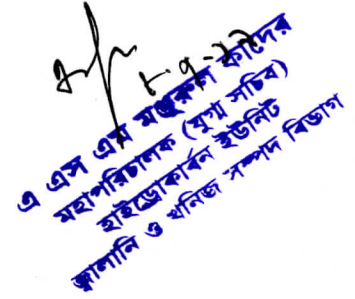 এ এস এম মঞ্জুরুল কাদের
মহাপরিচালক (যুগ্ম সচিব)
হাইড্রোকার্বন ইউনিট
জ্বালানি ও খনিজ সম্পদ বিভাগ